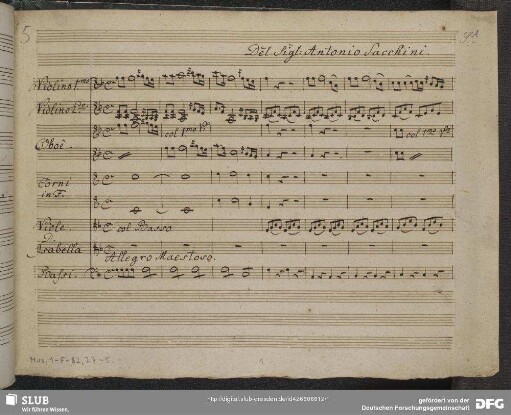 5
Del Sigl: Antonio Sacchini.
Violino 1mo
Violino 2do
col 1mo Vo
col 1mo Vo
Oboe
Corni
in F.
Viole
col Basso
D. Isabella
Allegro Maestoso.
Bassi
Mus. 1-F-82,27-5
1
SLUB
Wir führen Wissen.
http://digital.slub-dresden.de/id426606912/1
gefördert von der
Deutschen Forschungsgemeinschaft
DFG